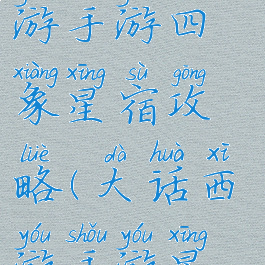 游手游四
xiàng xīng sù gōng
象星宿攻
lüè dà huà xī
略(大话西
yóu shǒu yóu xīng
游手游星